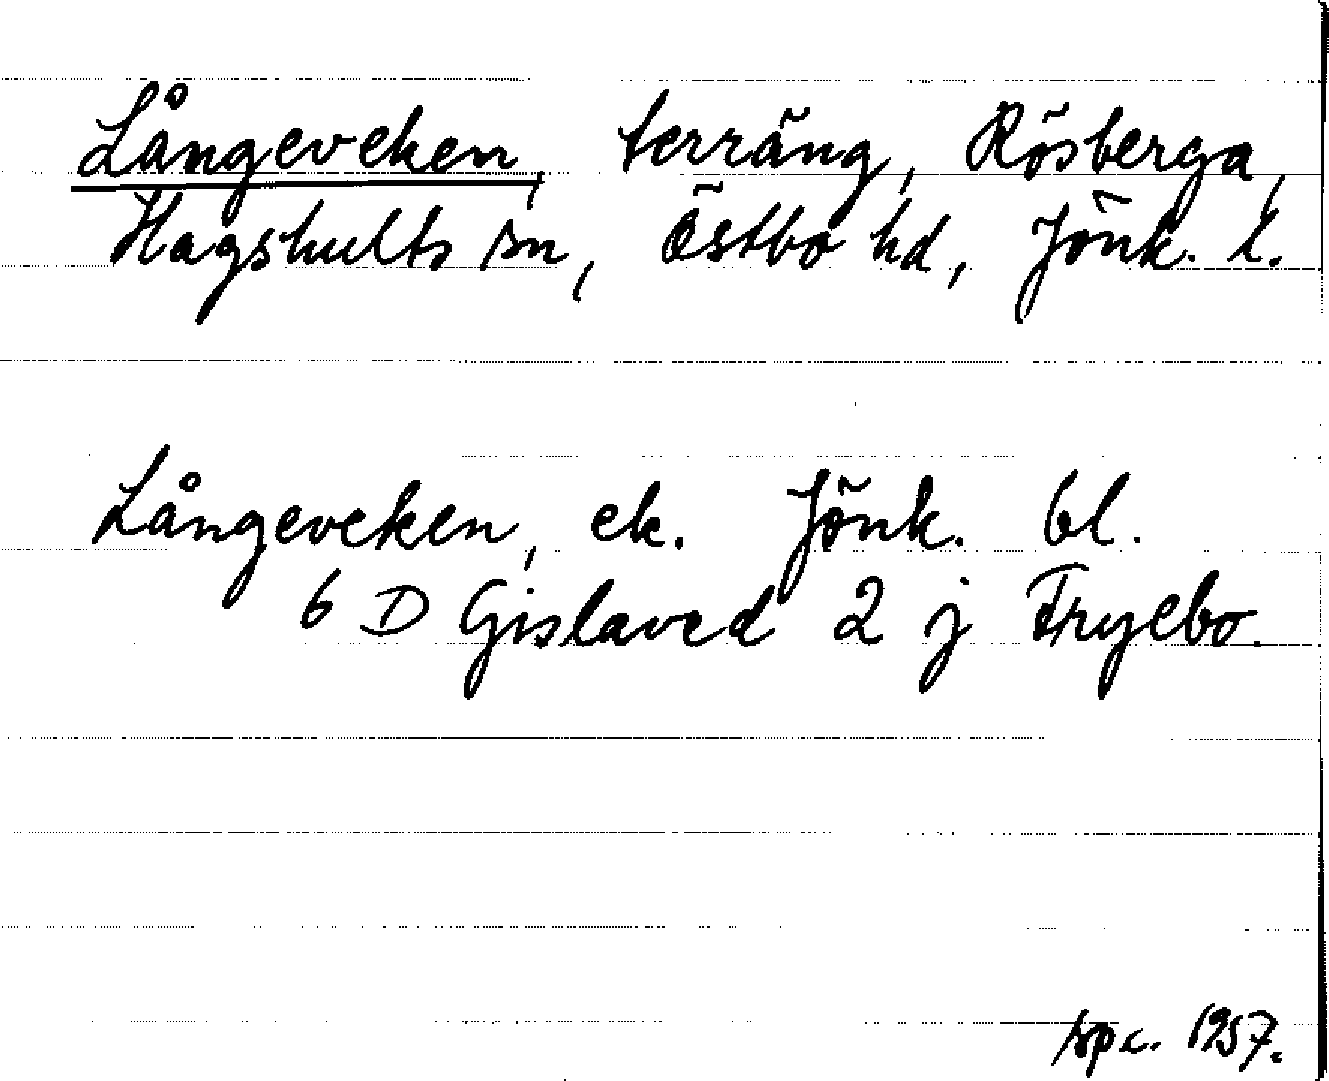 Långeveken, terräng, Rösberga,
Hagshults sn, Östbo hd, Jönk. l.
Långeveken, ek. Jönk. bl.
6 D Gislaved 2 j Fryebo.
spc. 1957.